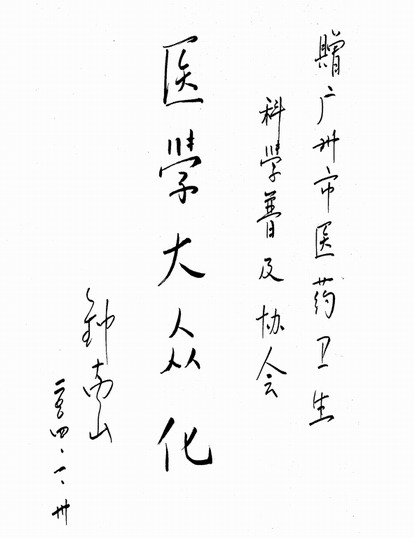 贈广州市医药卫生
科學普及协会
医學大众化
钟南山
二〇〇四.一.卅